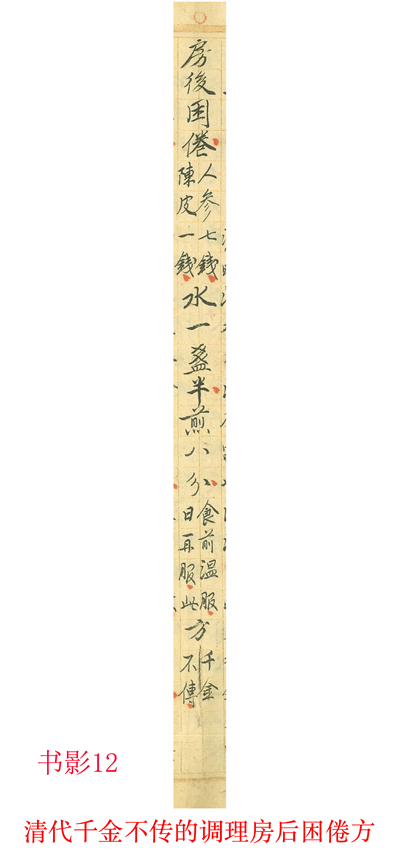 房後困倦
人參七錢
陳皮一錢
水一盞半煎八分
食前溫服
日再服此
方
千金
不傳
书影12
清代千金不传的调理房后困倦方